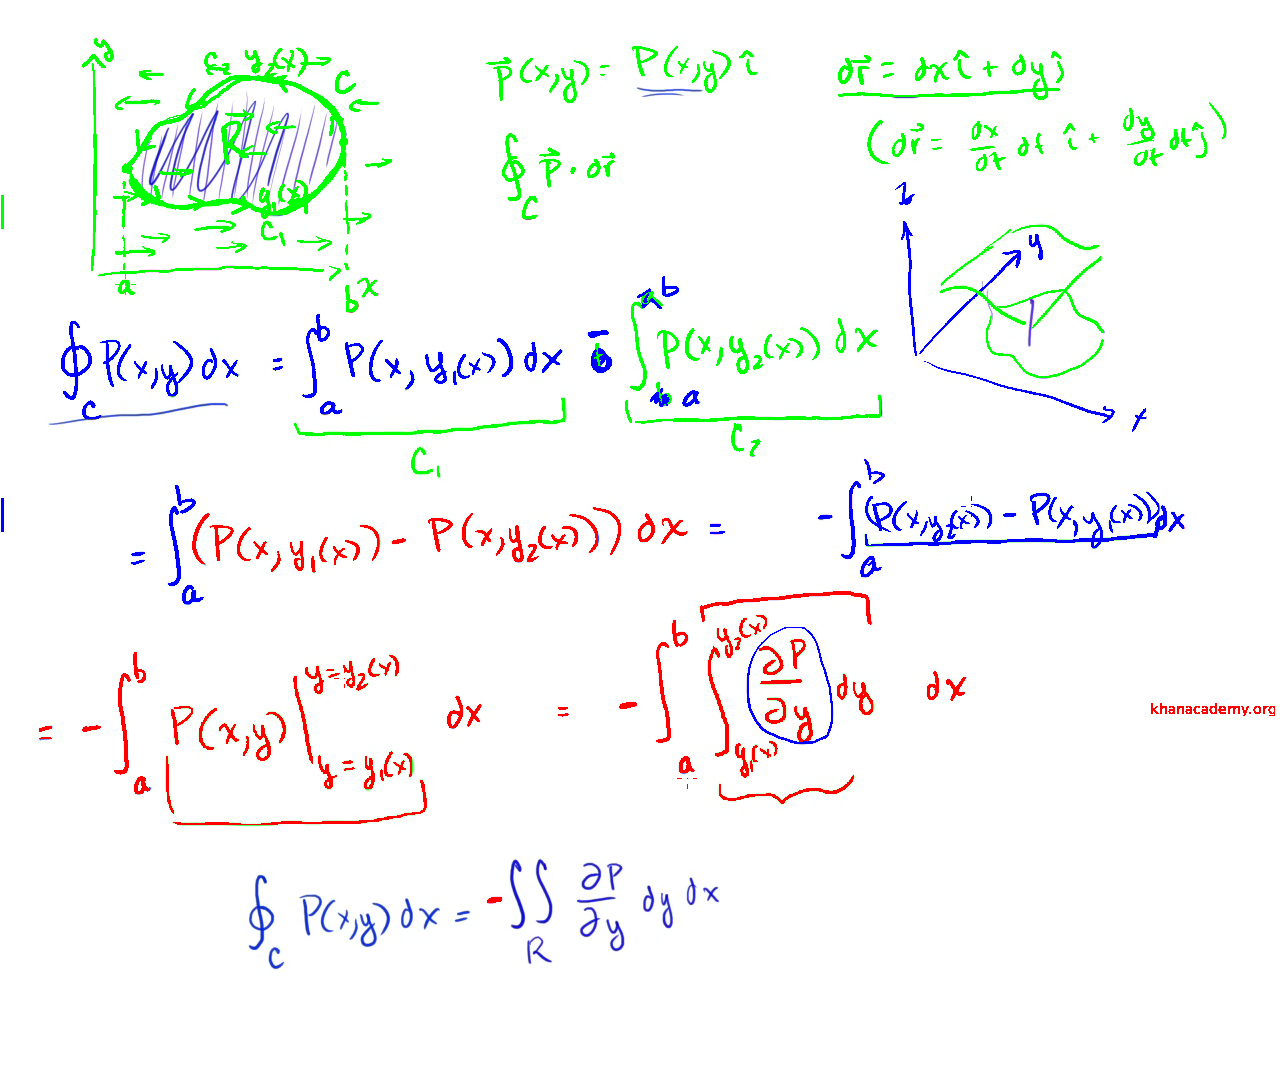 y
C₂ y₂(x)
C
R
y₁(x)
C₁
a
b x
P⃗(x,y) = P(x,y) î
dr⃗ = dx î + dy ĵ
∮_C P⃗ · dr⃗
(dr⃗ = dx/dt dt î + dy/dt dt ĵ)
z
y
x
∮_C P(x,y) dx = ∫_a^b P(x, y₁(x)) dx − ∫_a^b P(x, y₂(x)) dx
C₁
C₂
= ∫_a^b (P(x, y₁(x)) − P(x, y₂(x))) dx = − ∫_a^b (P(x, y₂(x)) − P(x, y₁(x))) dx
= − ∫_a^b P(x,y) |_{y = y₁(x)}^{y = y₂(x)} dx = − ∫_a^b ∫_{y₁(x)}^{y₂(x)} ∂P/∂y dy dx
khanacademy.org
∮_C P(x,y) dx = − ∬_R ∂P/∂y dy dx